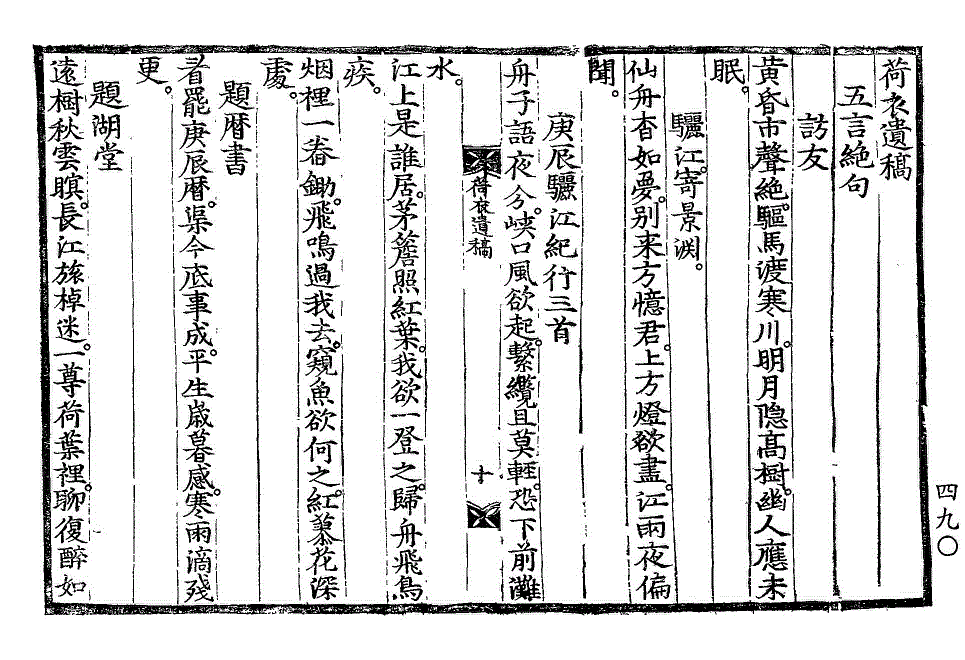 荷衣遺稿
五言絶句
訪友
黄昏市聲絶。驅馬渡寒川。明月隐高樹。幽人應未
眠。
驪江。寄景淵。
仙舟杳如夢。别来方憶君。上方燈欲盡。江雨夜偏
聞。
庚辰驪江紀行三首
舟子語夜分。峽口風欲起。繫纜且莫輕。恐下前灘
水。
荷衣遺稿
十
江上是誰居。茅簷照紅葉。我欲一登之。歸舟飛鳥
疾。
烟裡一舂鋤。飛鳴過我去。窺魚欲何之。紅蓼花深
處。
題曆書
看罷庚辰曆。渠今底事成。平生歲暮感。寒雨滴殘
更。
題湖堂
遠樹秋雲暝。長江旅棹迷。一尊荷葉裡。聊復醉如
四九〇